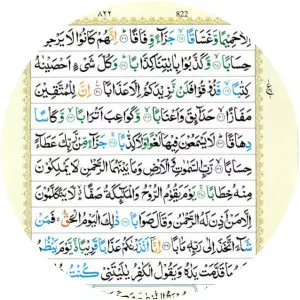 ٨٢٢ 822
حَمِيمًا وَّغَسَّاقًا ۙ جَزَآءً وِّفَاقًا ۙ اِنَّهُمْ كَانُوْا لَا
حِسَابًا ۙ وَّكَذَّبُوْا بِاٰيٰتِنَا كِذَّابًا ۙ وَكُلَّ شَيْءٍ اَحْصَيْنٰهُ
كِتٰبًا ۙ فَذُوْقُوْا فَلَنْ نَّزِيْدَكُمْ اِلَّا عَذَابًا ۙ اِنَّ لِلْمُتَّقِيْنَ
مَفَازًا ۙ حَدَآئِقَ وَاَعْنَابًا ۙ وَّكَوَاعِبَ اَتْرَابًا ۙ وَّكَاْسًا
دِهَاقًا ۙ لَا يَسْمَعُوْنَ فِيْهَا لَغْوًا وَّلَا كِذّٰبًا ۙ جَزَآءً مِّنْ رَّبِّكَ عَطَآءً
حِسَابًا ۙ رَّبِّ السَّمٰوٰتِ وَالْاَرْضِ وَمَا بَيْنَهُمَا الرَّحْمٰنِ لَا يَمْلِكُوْنَ
مِنْهُ خِطَابًا ۙ يَوْمَ يَقُوْمُ الرُّوْحُ وَالْمَلٰٓئِكَةُ صَفًّا لَّا يَتَكَلَّمُوْنَ
اِلَّا مَنْ اَذِنَ لَهُ الرَّحْمٰنُ وَقَالَ صَوَابًا ۙ ذٰلِكَ الْيَوْمُ الْحَقُّ فَمَنْ
شَآءَ اتَّخَذَ اِلٰى رَبِّهٖ مَاٰبًا ۙ اِنَّآ اَنْذَرْنٰكُمْ عَذَابًا قَرِيْبًا ۙ يَّوْمَ يَنْظُرُ
مَا قَدَّمَتْ يَدٰهُ وَيَقُوْلُ الْكٰفِرُ يٰلَيْتَنِيْ كُنْتُ